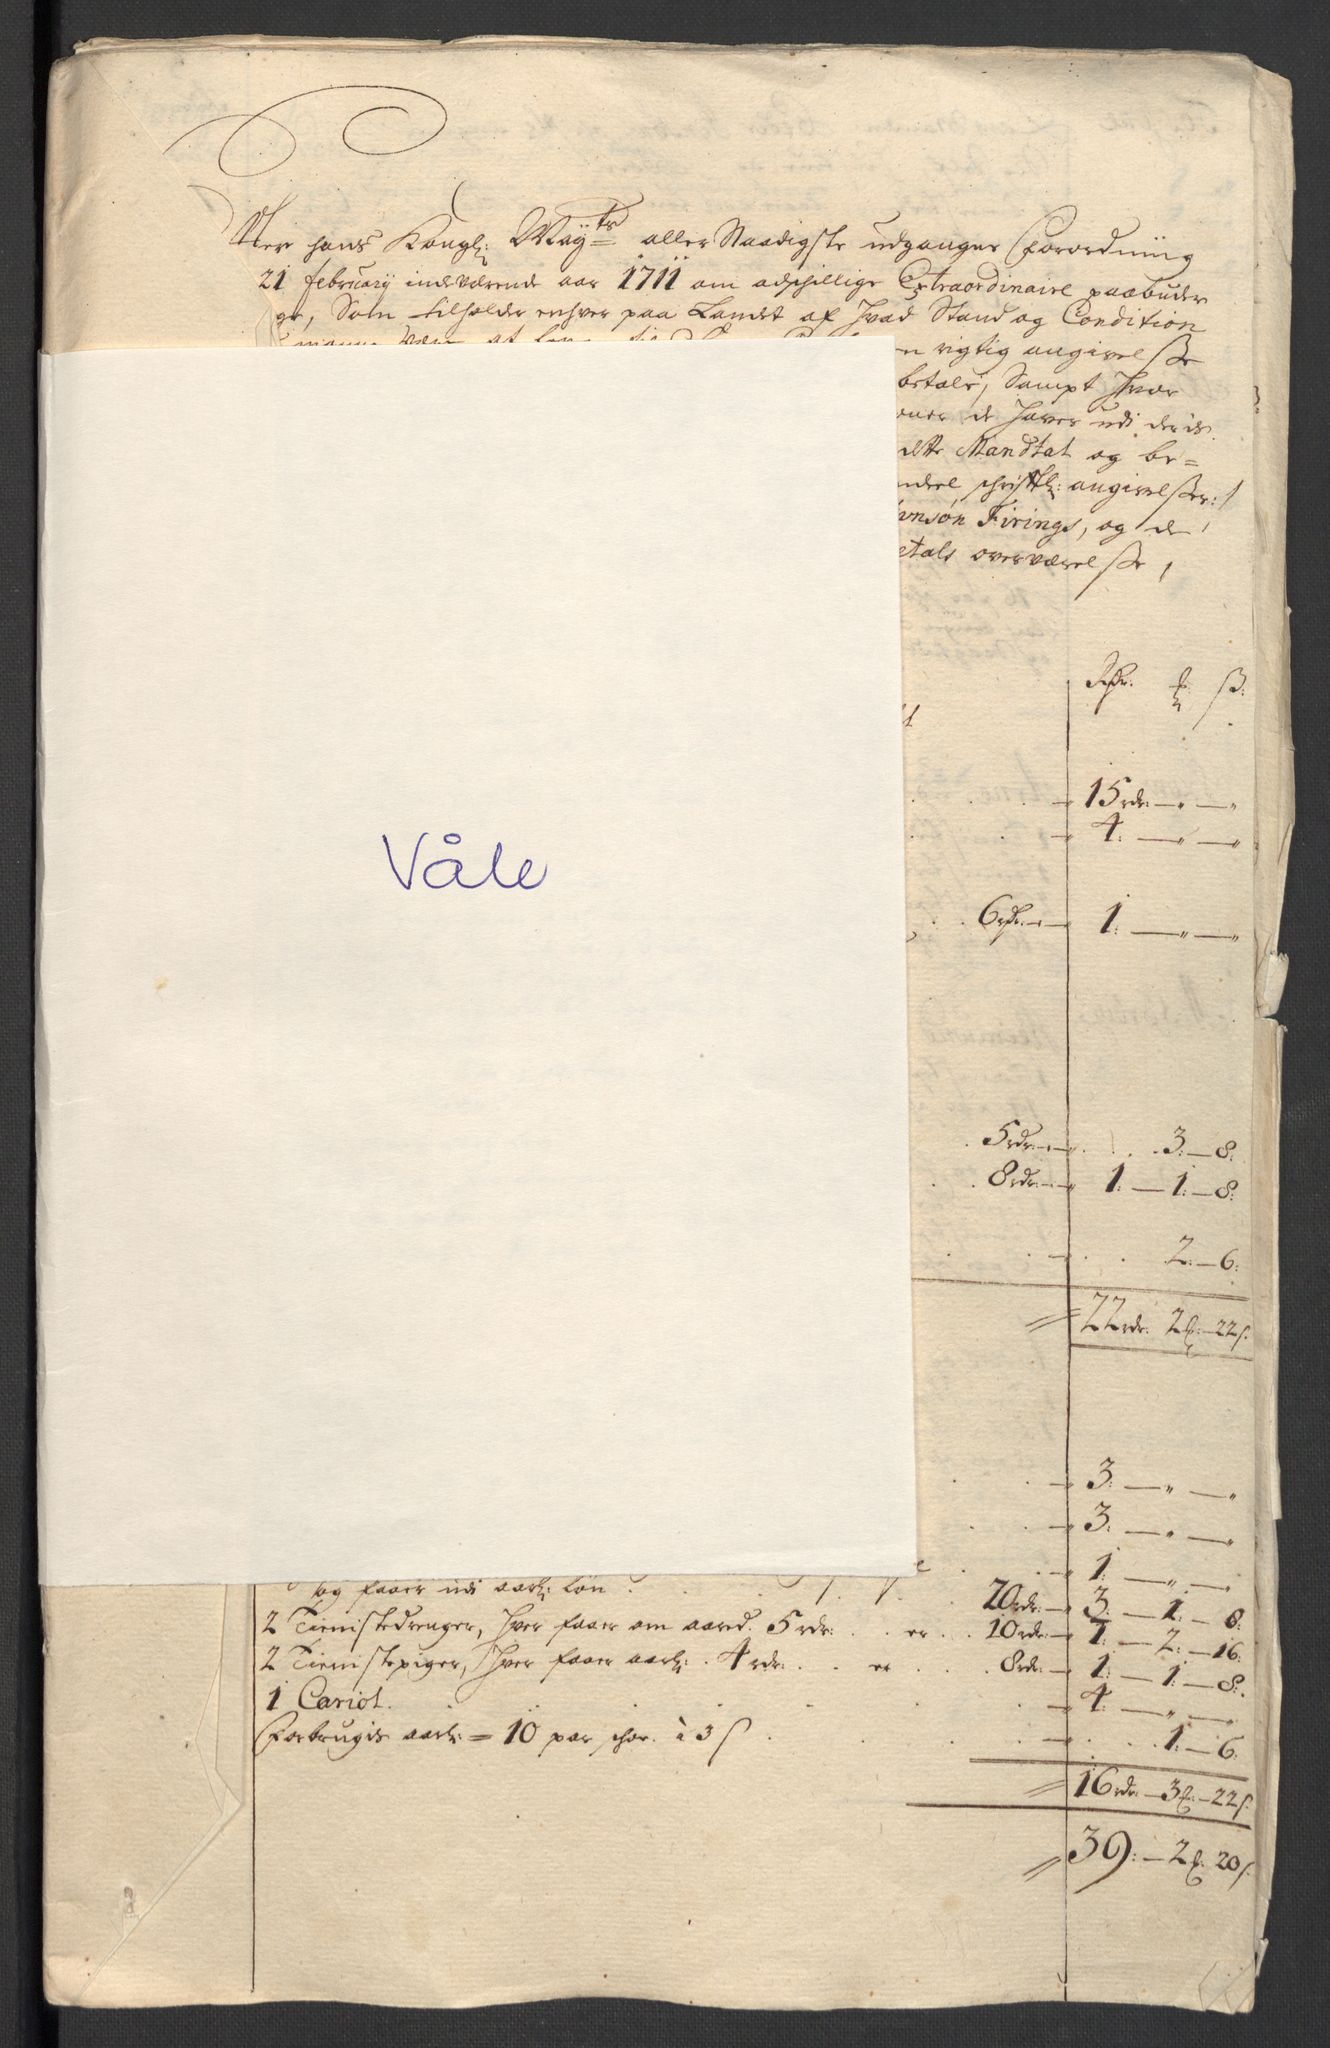 hans Kongl: May:ts aller Naadigste udgangne Forordning
21 February indeværende aar 1711 om adschillige Extraordinaire paabuder
Som tilholder enhver paa Landet af Hvad Stand og Condition
rigtig angivelsse
betale, Sampt Hvor
de Haver udi deris
Mandtal og be=
schrifftl: angivelsser:
Firings, og de
overværelsse,
Rdr. ß:
15 rdr: — " — "
4: — " — "
6 rdr: — 1: — " — "
5 rdr: — 3: — 8:
8 rdr: — 1: — 1: — 8:
2: — 6:
22 rdr: 2 — 22 s:
3: — " — "
3: — " — "
1: — " — "
og faaer udi aarl: Løn 20 rdr: — 3: — 1: — 8:
2 Tienistedrenger, Hver faaer om aaret. 5 rdr: er 10 rdr: — 1: — 2: — 16:
2 Tienistepiger, Hver faaer aarl: 4 rdr: er 8 rdr: — 1: — 1: — 8:
1 Cariol. 4: — " — "
Forbrugis aarl: = 10 par schoe. à 3 s 1: — 6:
16 rdr: — 3 — 22 s:
39: — 2 20 s:
Våle